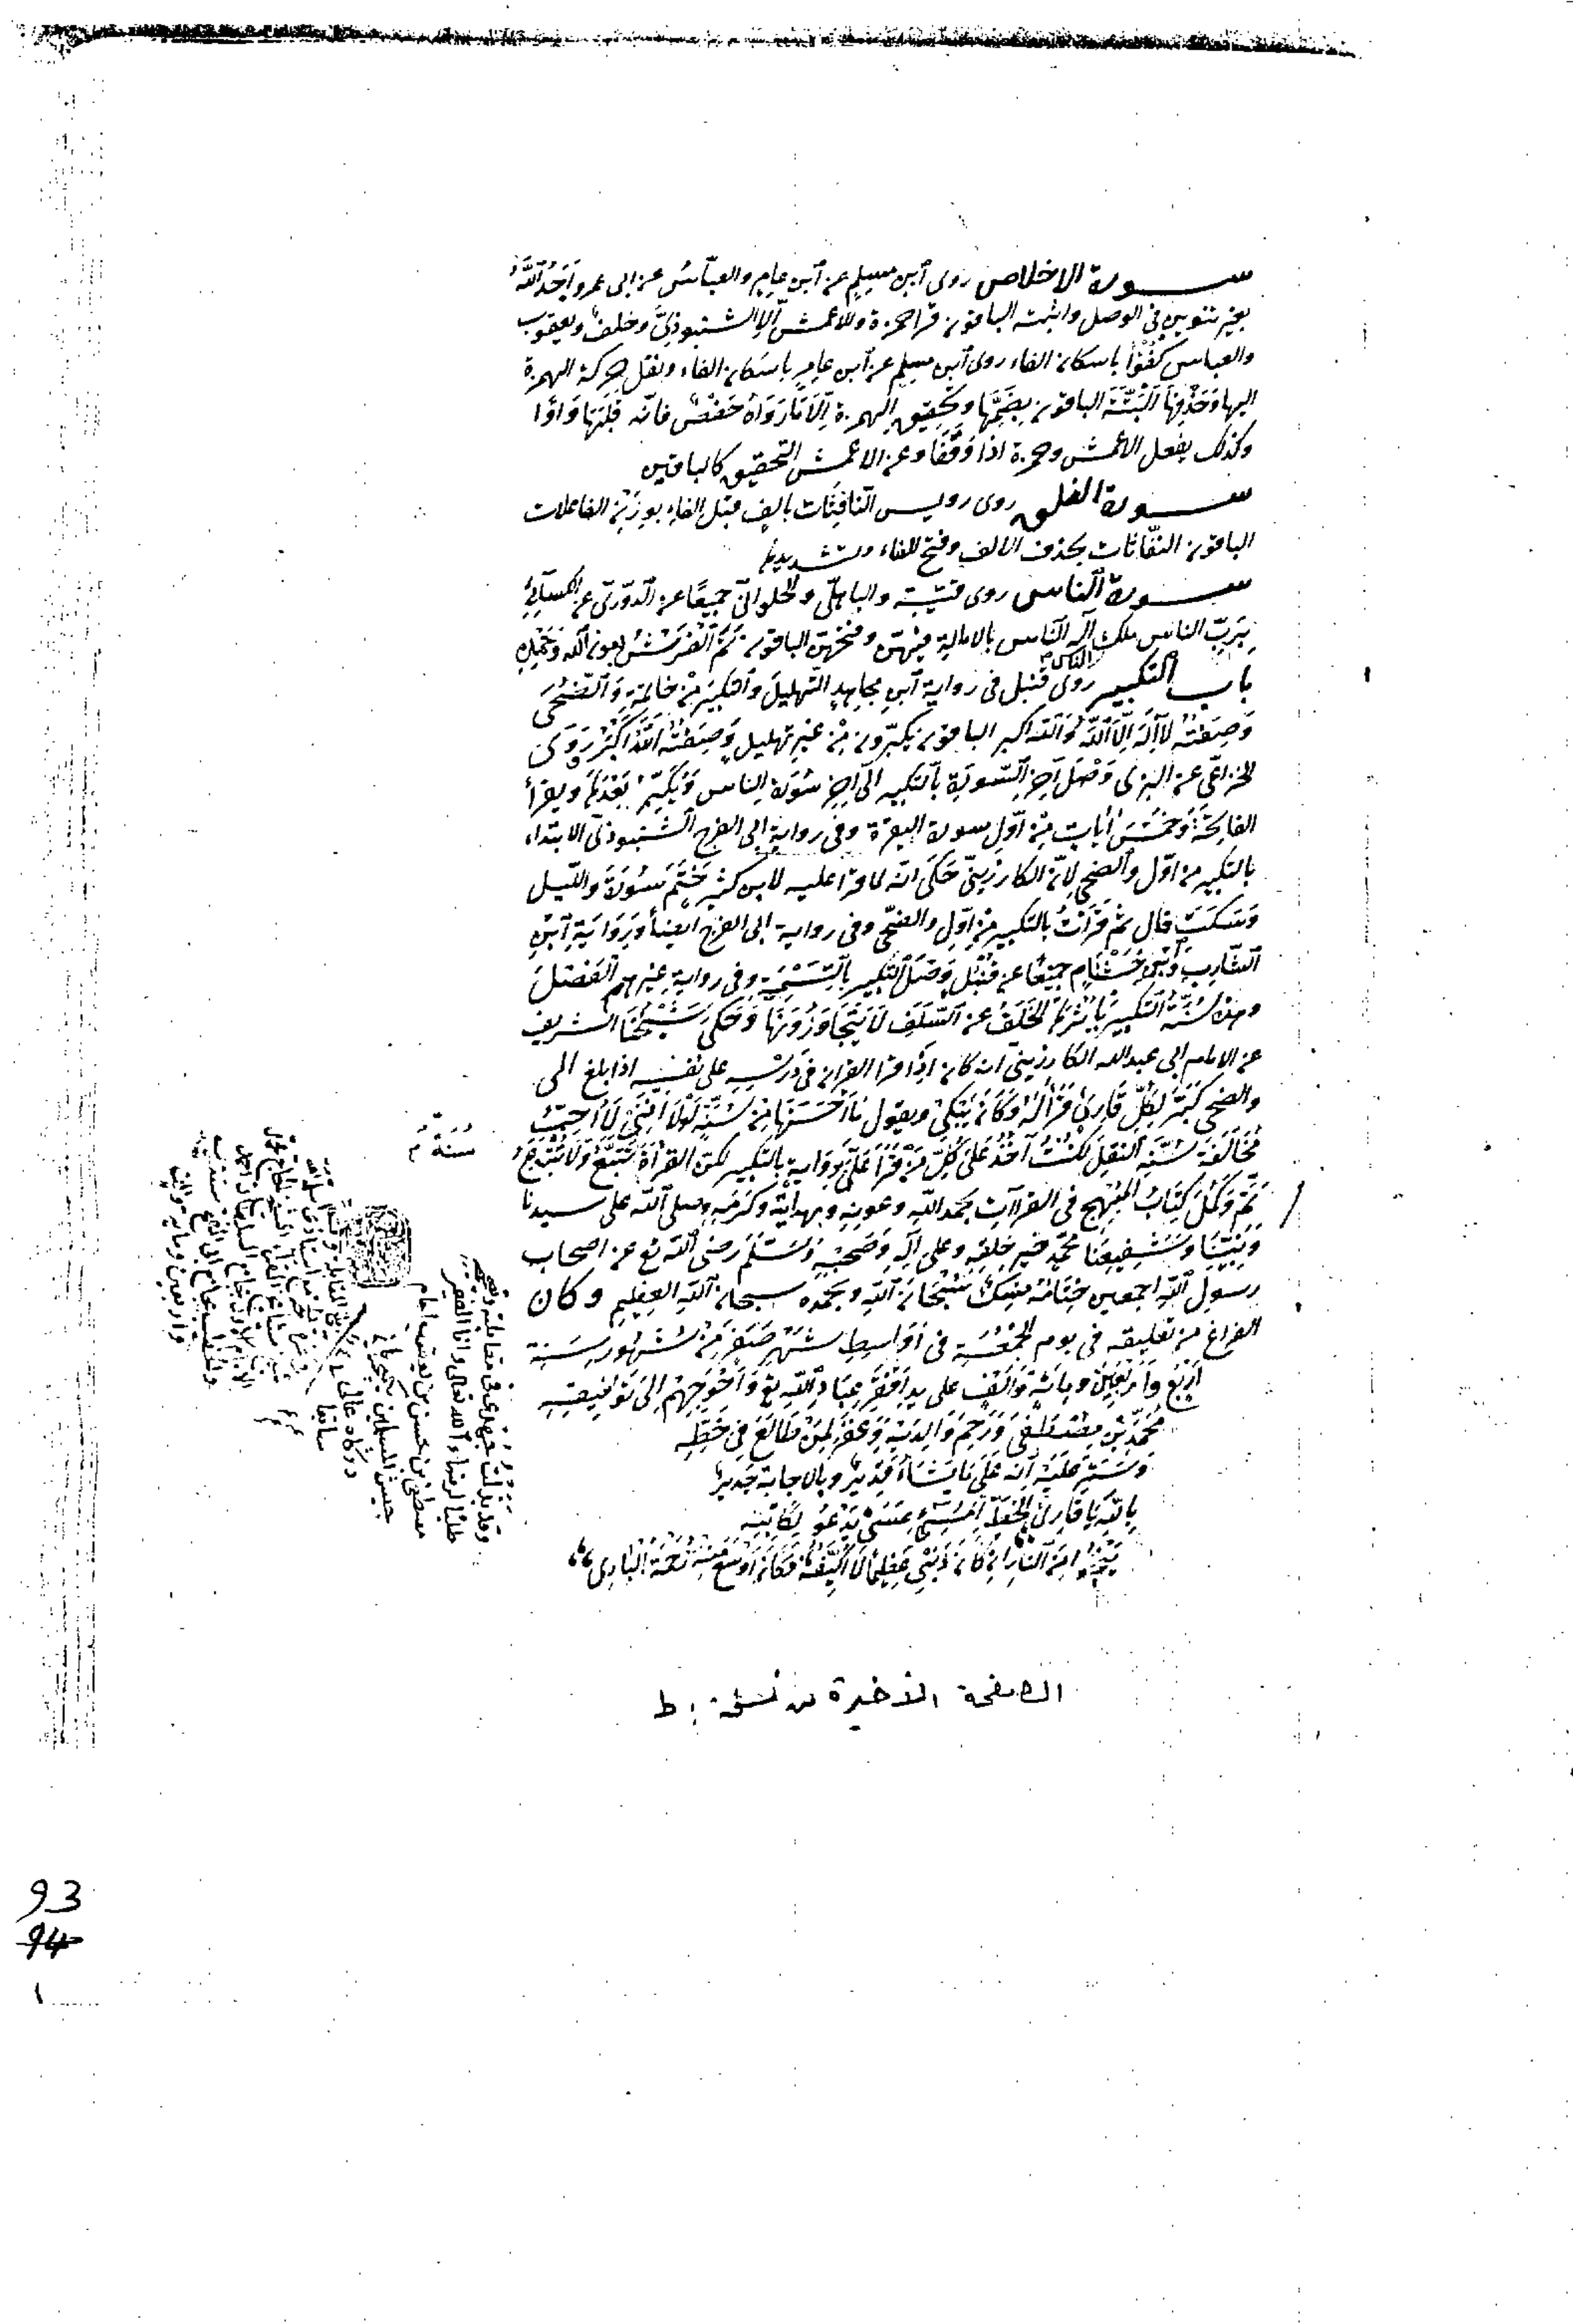 سورة الاخلاص روى ابن مسلم عن ابن عامر والعباس عن ابى عمرو اَحَدُ اللّٰهُ
بغير تنوين فى الوصل واثبته الباقون قرا حمزة والاعمش الا الشنبوذى وخلف ويعقوب
والعباس كُفْؤًا باسكان الفاء روى ابن مسلم عن ابن عامر باسكان الفاء ونقل حركة الهمزة
اليها وَحَذْفِهَا اَلْبَتَّةَ الباقون بِضَمِّهَا وتحقيق الهمزة اِلَّا مَا رَوَاهُ حَفْصٌ فانّه قَلَبَهَا وَاوًا
وكذلك يفعل الاعمش وحمزة اذا وَقَفَا وعن الاعمش التحقيق كالباقين
سورة الفلق روى رويس النافثات بالف قبل الفاء بوزن الفاعلات
الباقون النفّاثات بحذف الالف وفتح الفاء وتشديدها
سورة الناس روى قتيبة والباهلى والحلوانى جميعًا عن الدّورىّ عن الكسآئى
بِرَبِّ الناس ملك اله النّاس بالامالة فيهنّ وفتحهنّ الباقون تَمَّ الفَرْشُ بعون الله وَحَمْدِهِ
الناس
باب التكبير روى قنبل فى رواية ابن مجاهد التهليل والتكبير مِنْ خاتمة وَالضُّحٰى
وَصِفَتُهُ لَا اِلٰهَ اِلَّا اللّٰهُ وَاللّٰه اكبر الباقون يكبّرون مِنْ غير تهليل وَصِفَتُهُ اللّٰهُ اَكْبَرُ رَوَى
الخزاعى عن البزى وَصْلَ آخِر السّورة بالتكبير الى آخر سُورَة الناس وَيُكَبِّرُ بَعْدَهَا ويقرأ
الفاتحة وَخَمْسَ آياتٍ مِنْ اَوّل سورة البقرة وفى رواية ابى الفرج الشنبوذى الابتداء
بالتكبير من اوّل والضحى لانّ الكارزينىّ حَكَى انّه لما قرا عليه لابن كثير خَتَمَ سُورَةَ والليل
وَسَكَتَ قال ثم قَرَأْتُ بالتكبير من اوّل والضحى وفى رواية ابى الفرج ايضًا وَبِرِوَايَةِ ابْنِ
الشّارب وَابْنِ خَشْنَام جَمِيعًا عن قُنْبُل وَصْلُ التكبير بِالتَّسْمِيَةِ وفى رواية غيرهم الفَصْلُ
وهذه سُنَّةُ التكبير يَأْثُرُهَا الخَلَفُ عن السَّلَفِ لَا يَتَجَاوَزُونَهَا وَحَكَى شَيْخُنَا الشريف
عن الامام ابى عبد الله الكارزينىّ انه كان اِذَا قرا القران فى دَرْسِهِ على نفسه اذا بلغ الى
والضحى كَبَّرَ لِكُلِّ قَارِئٍ قَرَأَ لَهُ وَكَانَ يَبْكِى ويقول مَا اَحْسَنَهَا مِنْ سُنَّةٍ لَوْلَا اَنَّنِى لَا اُحِبُّ
مُخَالَفَةَ سُنَّةِ النقل لَكُنْتُ اٰخُذُ عَلَى كُلِّ مَنْ قَرَأَ عَلَىَّ بِرِوَايَةٍ بالتكبير لكن القراءة تُتَّبَعُ وَلَا تُبْتَدَعُ
سُنَّةٌ
تَمَّ وَكَمُلَ كِتَابُ المُبْهِج فى القراآت بحمد اللّٰه وعونه وبهدايته وكرمه وصلى اللّٰه على سيدنا
وَنَبِيِّنَا وَشَفِيعِنَا مُحَمَّدٍ خير خلقه وعلى اٰله وَصَحْبِهِ وَسَلَّمَ رضى اللّٰه تع عن اصحاب
رسول اللّٰه اجمعين خِتَامُهُ مِسْكٌ سُبْحَانَ اللّٰه وبحمده سبحان اللّٰه العظيم وكان
الفراغ من تعليقه فى يوم الخَمْسَة فى اَوَاسِطِ شَهْرِ صَفَرَ مِنْ شُهُورِ سَنَة
اَرْبَعٍ وَاَرْبَعِينَ وَمِائَةٍ وَاَلْفٍ على يد اَفْقَرِ عِبَادِ اللّٰه تع وَاَحْوَجِهِمْ اِلَى تَوْفِيقِهِ
مُحَمَّدِ بْنِ مُصْطَفَى وَرَحِمَ وَالِدَيْهِ وَغَفَرَ لِمَنْ طَالَعَ فِى خَطِّهِ
وَسَتَرَ عَلَيْهِ اِنَّه عَلَى مَا يَشَاءُ قَدِيرٌ وبالاجابة جَدِيرٌ
بِاللّٰهِ يَا قَارِئَ الخَطِّ عَسَى يَدْعُو لِكَاتِبِهِ
مِنَ النَّارِ اِنْ كَانَ ذَنْبِى عَظِيمًا فَكَانَ اَوْسَعَ مِنْهُ رَحْمَةُ الْبَارِى
وقد بذلت جهدى فى مقابلته وتصحيحه
طلبًا لرضاء اللّٰه تعالى وانا الفقير
مصطفى بن حسن بن يوسف امام
الصفحة الأخيرة من نسخة: ط
93
94
١